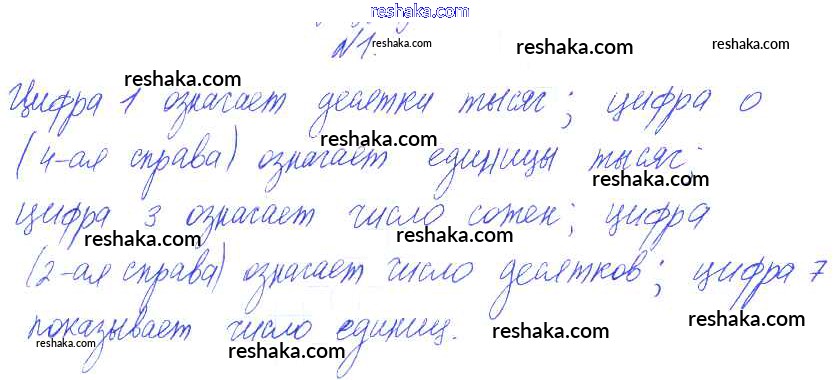 reshaka.com
№1. reshaka.com reshaka.com reshaka.com
reshaka.com
Цифра 1 означает десятки тысяч; цифра 0
reshaka.com reshaka.com
(4-ая справа) означает единицы тысяч;
reshaka.com
цифра 3 означает число сотен; цифра
reshaka.com reshaka.com
(2-ая справа) означает число десятков; цифра 7
reshaka.com reshaka.com
показывает число единиц.
reshaka.com reshaka.com reshaka.com